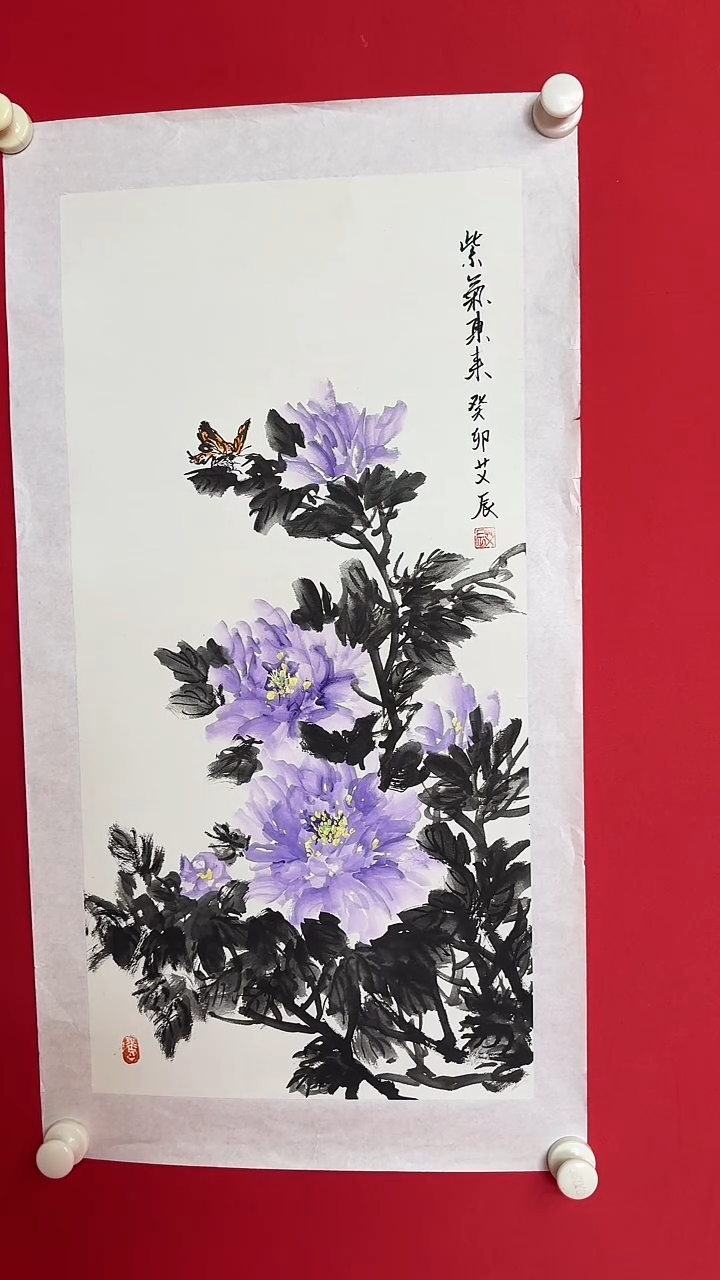 紫氣東来 癸卯艾辰